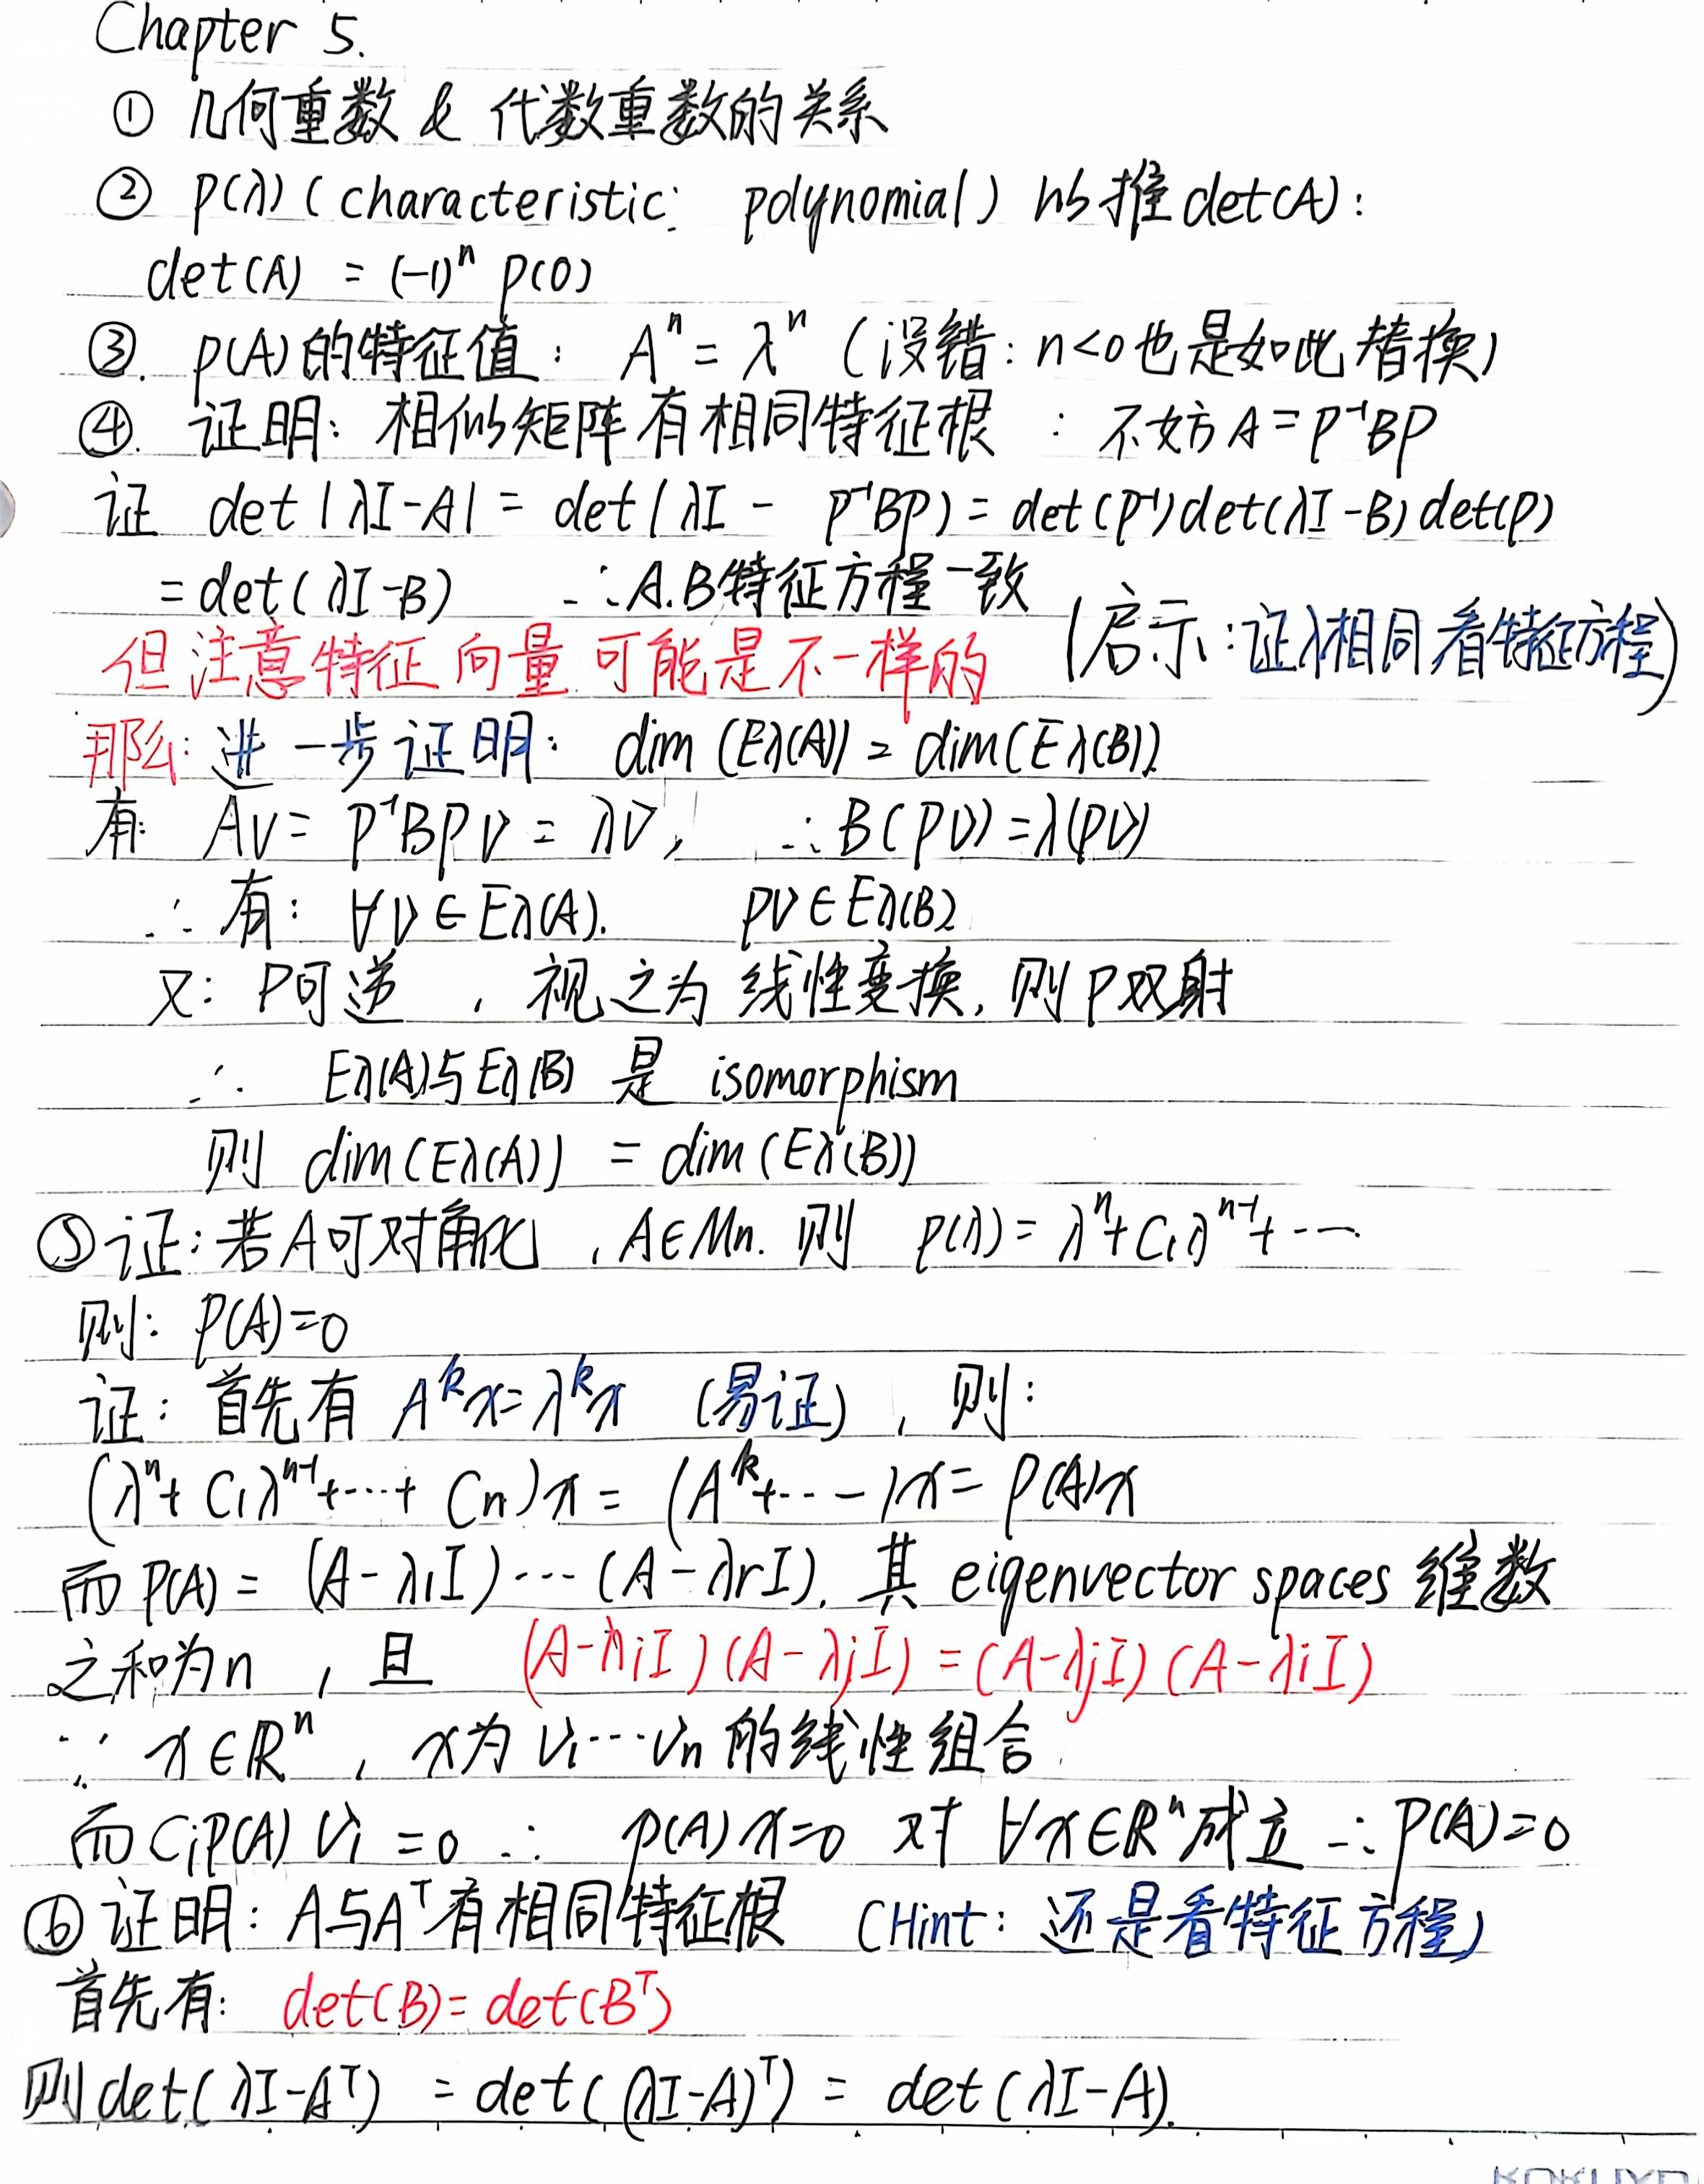 Chapter 5.
① 几何重数 & 代数重数的关系
② p(λ) (characteristic: polynomial) 推 det(A):
det(A) = (-1)ⁿ p(0)
③. p(A)的特征值: Aⁿ = λⁿ (没错: n<0也是如此替换)
④. 证明: 相似矩阵有相同特征根 : 不妨 A = P⁻¹BP
证 det|λI-A| = det(λI - P⁻¹BP) = det(P⁻¹)det(λI-B)det(P)
= det(λI-B) ∴A.B特征方程一致
(启示:证λ相同看特征方程)
但注意特征向量可能是不一样的
那么: 进一步证明: dim (Eλ(A)) = dim(Eλ(B))
有: Av = P⁻¹BPv = λv, ∴B(Pv) = λ(Pv)
∴ 有: ∀v∈Eλ(A). Pv∈Eλ(B)
又: P可逆 , 视之为线性变换, 则P双射
∴ Eλ(A)与Eλ(B) 是 isomorphism
则 dim(Eλ(A)) = dim(Eλ(B))
⑤证:若A可对角化 , A∈Mn. 则 p(λ) = λⁿ + C₁λⁿ⁻¹ + ⋯
则: P(A)=0
证: 首先有 Aᵏx = λᵏx (易证) , 则:
(λⁿ + C₁λⁿ⁻¹ + ⋯ + Cn)x = (Aᵏ + ⋯)x = P(A)x
而P(A) = (A-λ₁I)⋯(A-λrI), 其 eigenvector spaces 维数
之和为n , 且 (A-λiI)(A-λjI) = (A-λjI)(A-λiI)
∵ x∈ℝⁿ , x为 v₁⋯vn 的线性组合
而CiP(A)vi = 0 ∴ p(A)x=0 对 ∀x∈ℝⁿ成立 ∴P(A)=0
⑥证明: A与Aᵀ有相同特征根 (Hint: 还是看特征方程)
首先有: det(B) = det(Bᵀ)
则det(λI-Aᵀ) = det((λI-A)ᵀ) = det(λI-A).